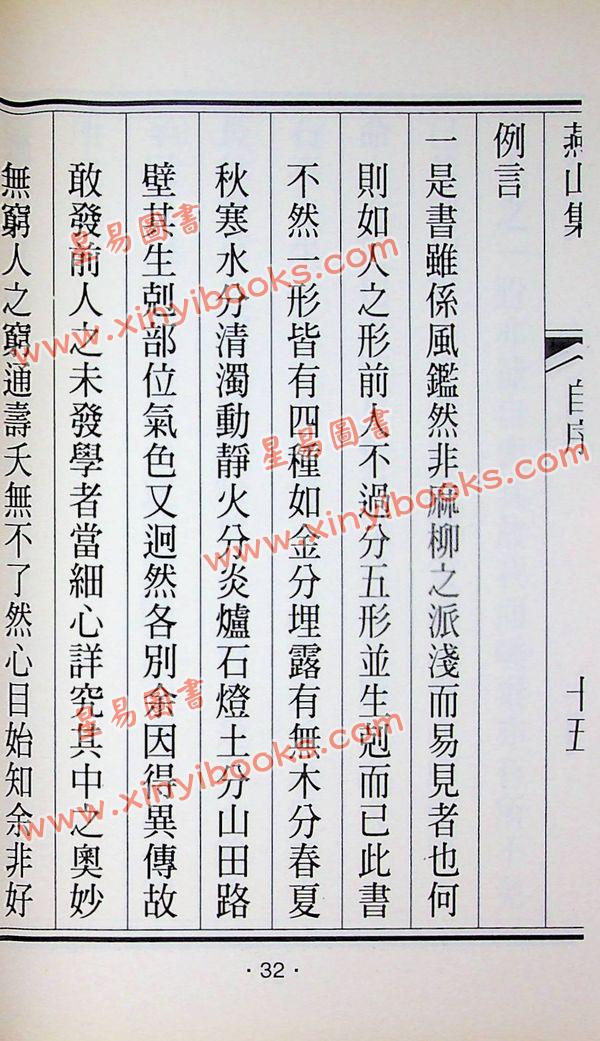 燕山集 自序 十五
例言
一是書雖係風鑑然非麻柳之派淺而易見者也何
則如人之形前人不過分五形並生剋而已此書
不然一形皆有四種如金分埋露有無木分春夏
秋寒水分清濁動靜火分炎爐石燈土分山田路
壁其生剋部位氣色又迥然各別余因得異傳故
敢發前人之未發學者當細心詳究其中之奧妙
無窮人之窮通壽夭無不了然心目始知余非好
· 32 ·
星易圖書
www.xinyibooks.com
星易圖書
www.xinyibooks.com
星易圖書
www.xinyibooks.com